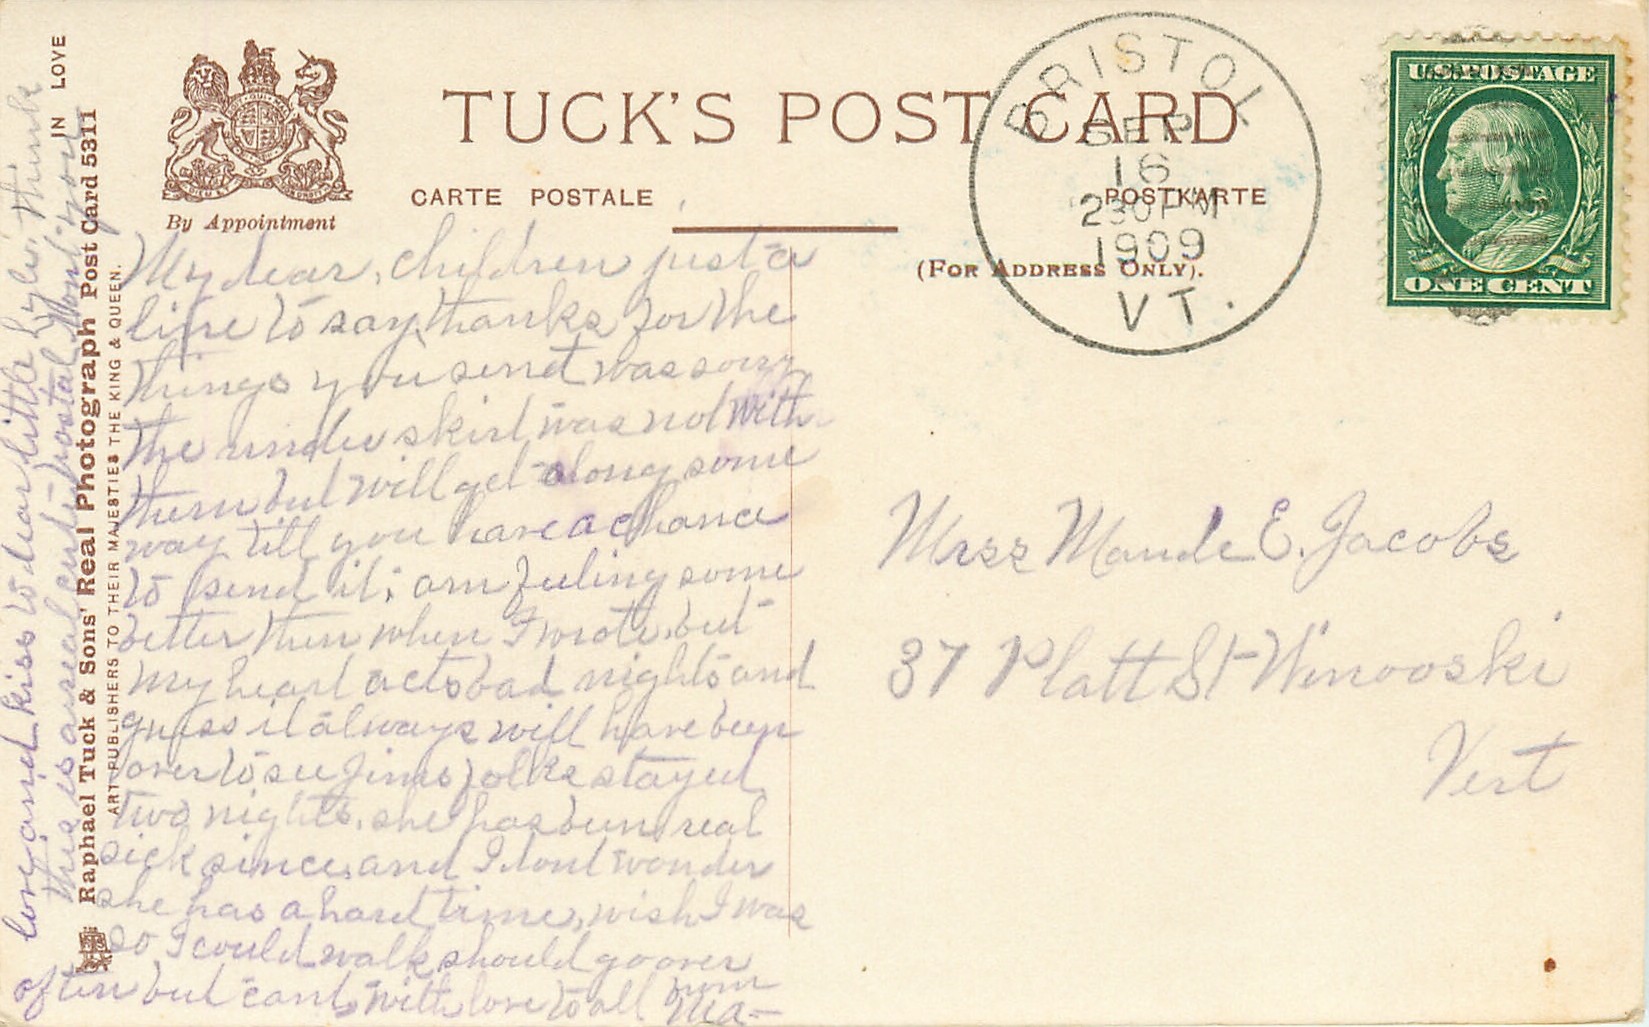 TUCK'S POST CARD
CARTE POSTALE
POSTKARTE
(FOR ADDRESS ONLY).
By Appointment
BRISTOL
SEP
16
230 PM
1909
VT.
U.S. POSTAGE
ONE CENT
IN LOVE
Raphael Tuck & Sons' Real Photograph Post Card 5311
ART PUBLISHERS TO THEIR MAJESTIES THE KING & QUEEN.
My dear children just a
line to say thanks for the
things you send was sorry
the under skirt was not with
them but will get along some
way till you have a chance
to send it; am feeling some
better then when I wrote, but
my heart acts bad nights and
guess it always will have been
over to see Jims folks stayed
two nights, she has been real
sick since, and I dont wonder
she has a hard time, wish I was
so I could walk should go over
often but cant, with love to all from
Ma-
love and kiss to dear little Lyle, think
this is a real centi postal dont you
Miss Maude E. Jacobs
37 Platt St Winooski
Vert